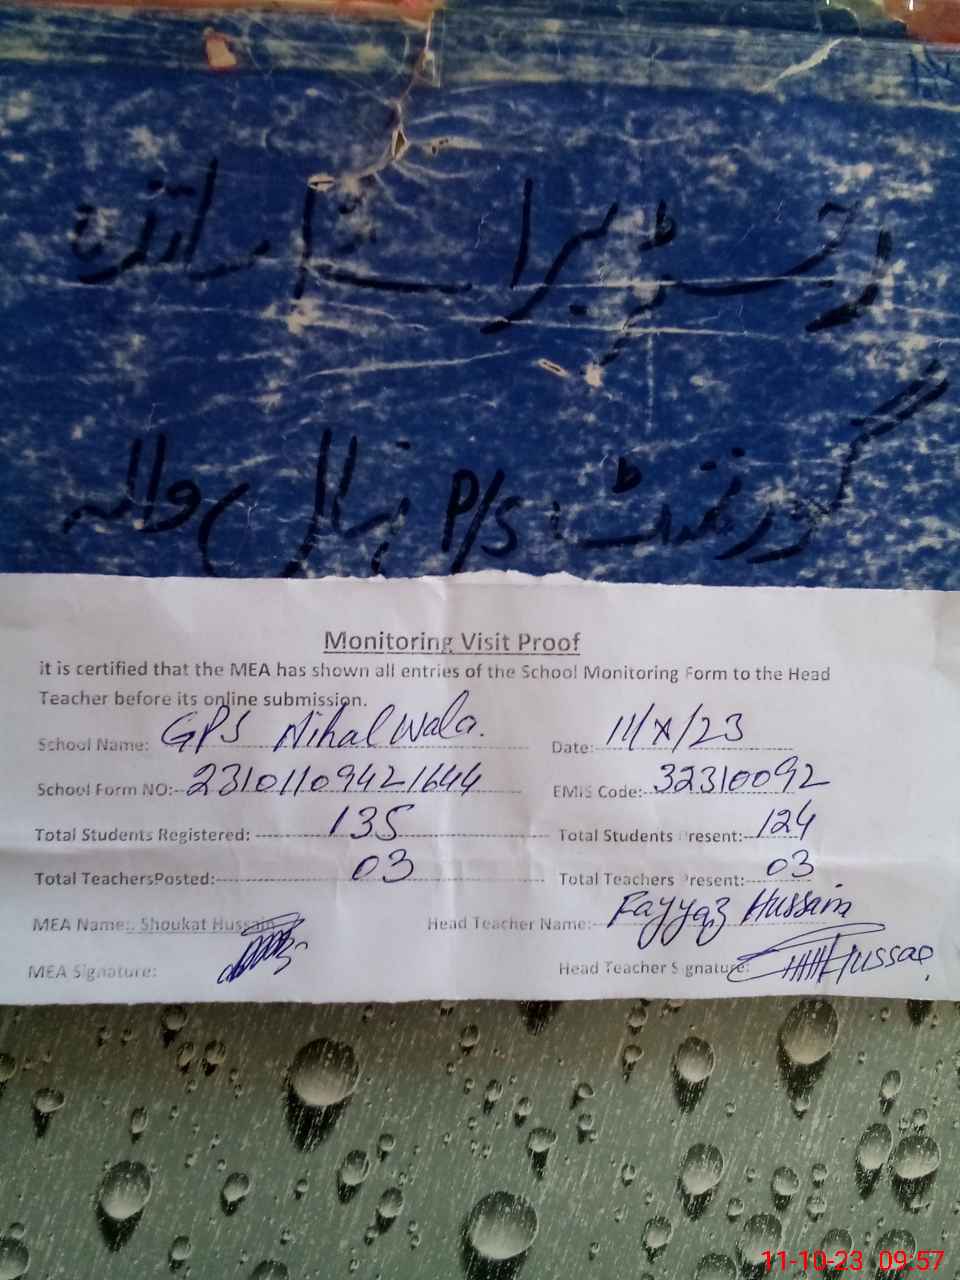 رجسٹر براے اساتذہ
گورنمنٹ P/S نہال والہ
Monitoring Visit Proof
it is certified that the MEA has shown all entries of the School Monitoring Form to the Head
Teacher before its online submission.
School Name: GPS Nihal Wala. Date: 11/X/23
School Form NO: 23101109421644 EMIS Code: 32310092
Total Students Registered: 135 Total Students Present: 124
Total TeachersPosted: 03 Total Teachers Present: 03
MEA Name: Shoukat Hussain Head Teacher Name: Fayyaz Hussain
MEA Signature: Head Teacher Signature:
11-10-23 09:57